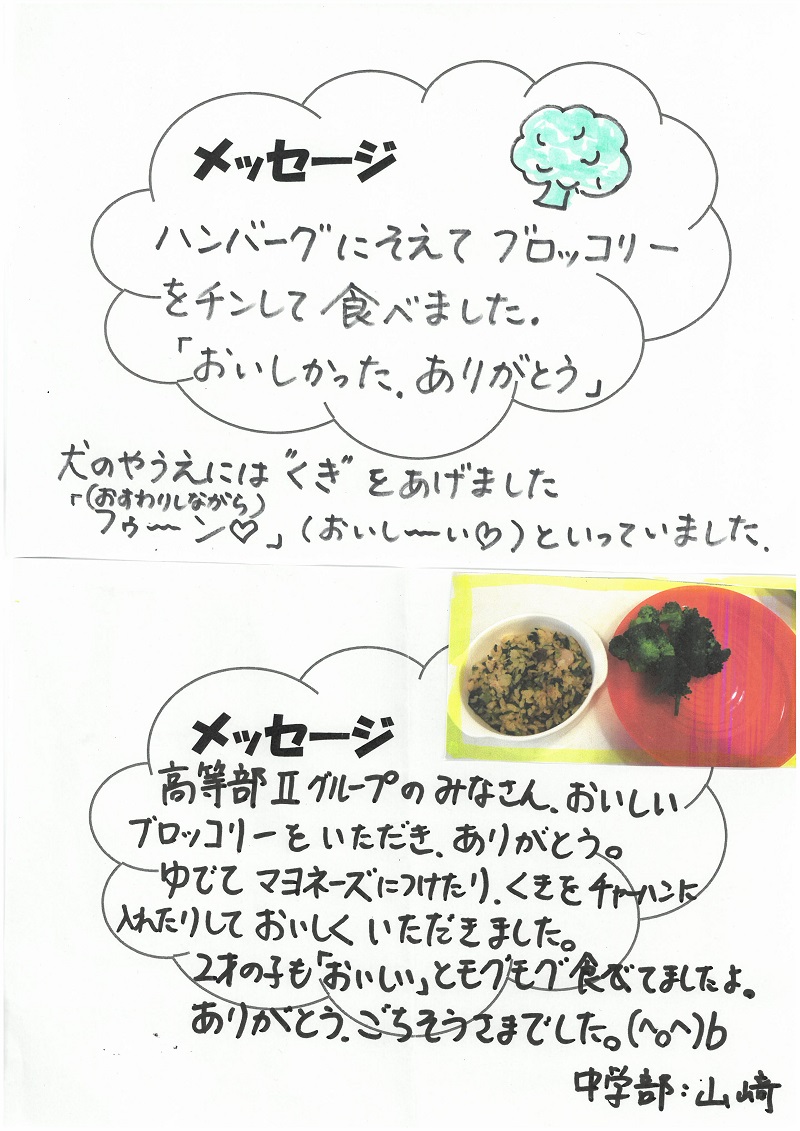 メッセージ
ハンバーグにそえてブロッコリー
をチンして食べました。
「おいしかった。ありがとう」
犬のやうえには"くき"をあげました
「(おすわりしながら)
フゥ〜ン♡」(おいし〜い♡)といっていました。
メッセージ
高等部Ⅱグループのみなさん、おいしい
ブロッコリーをいただき、ありがとう。
ゆでてマヨネーズにつけたり、くきをチャーハンに
入れたりしておいしくいただきました。
2才の子も「おいしい」とモグモグ食べてましたよ。
ありがとう。ごちそうさまでした。(^o^)b
中学部:山﨑